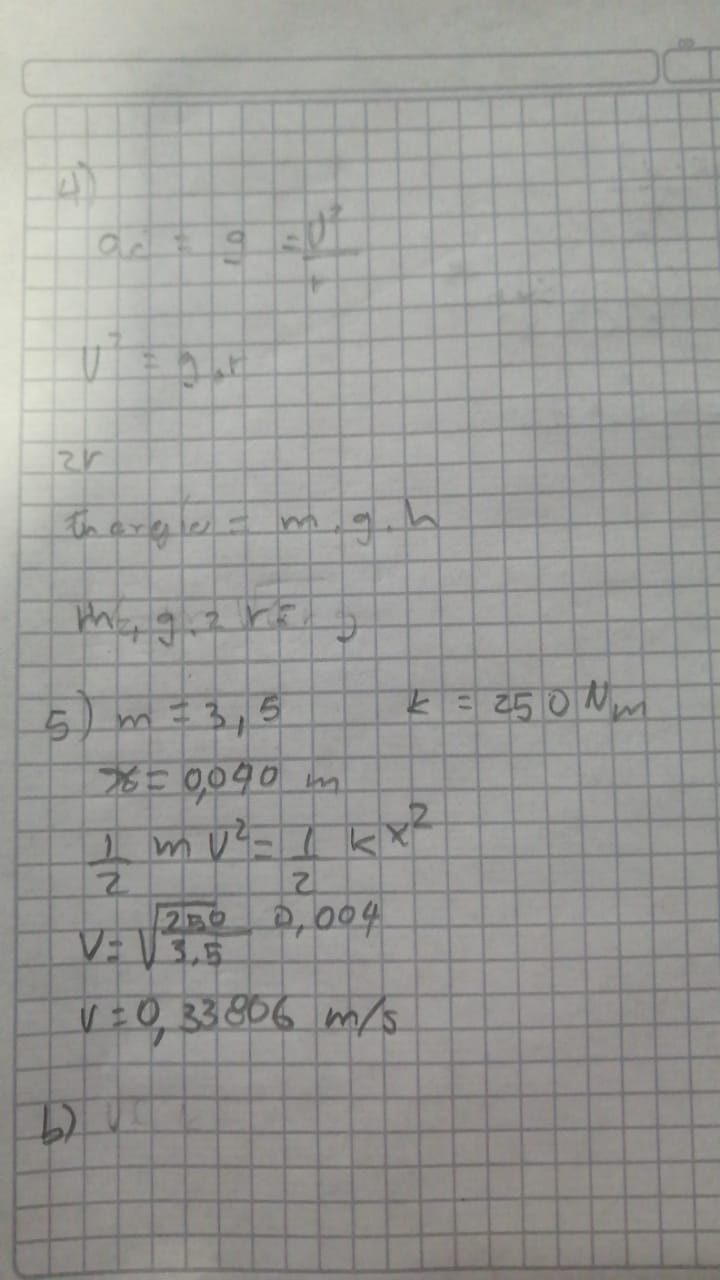 4)
ac = g = v²/r
v² = g.r
2r
Energia = m.g.h
m, g. 2 r =
5) m = 3,5 k = 250 Nm
x = 0,040 m
1/2 m v² = 1/2 k x²
v = √250/3.5 0,004
v = 0,33806 m/s
b)